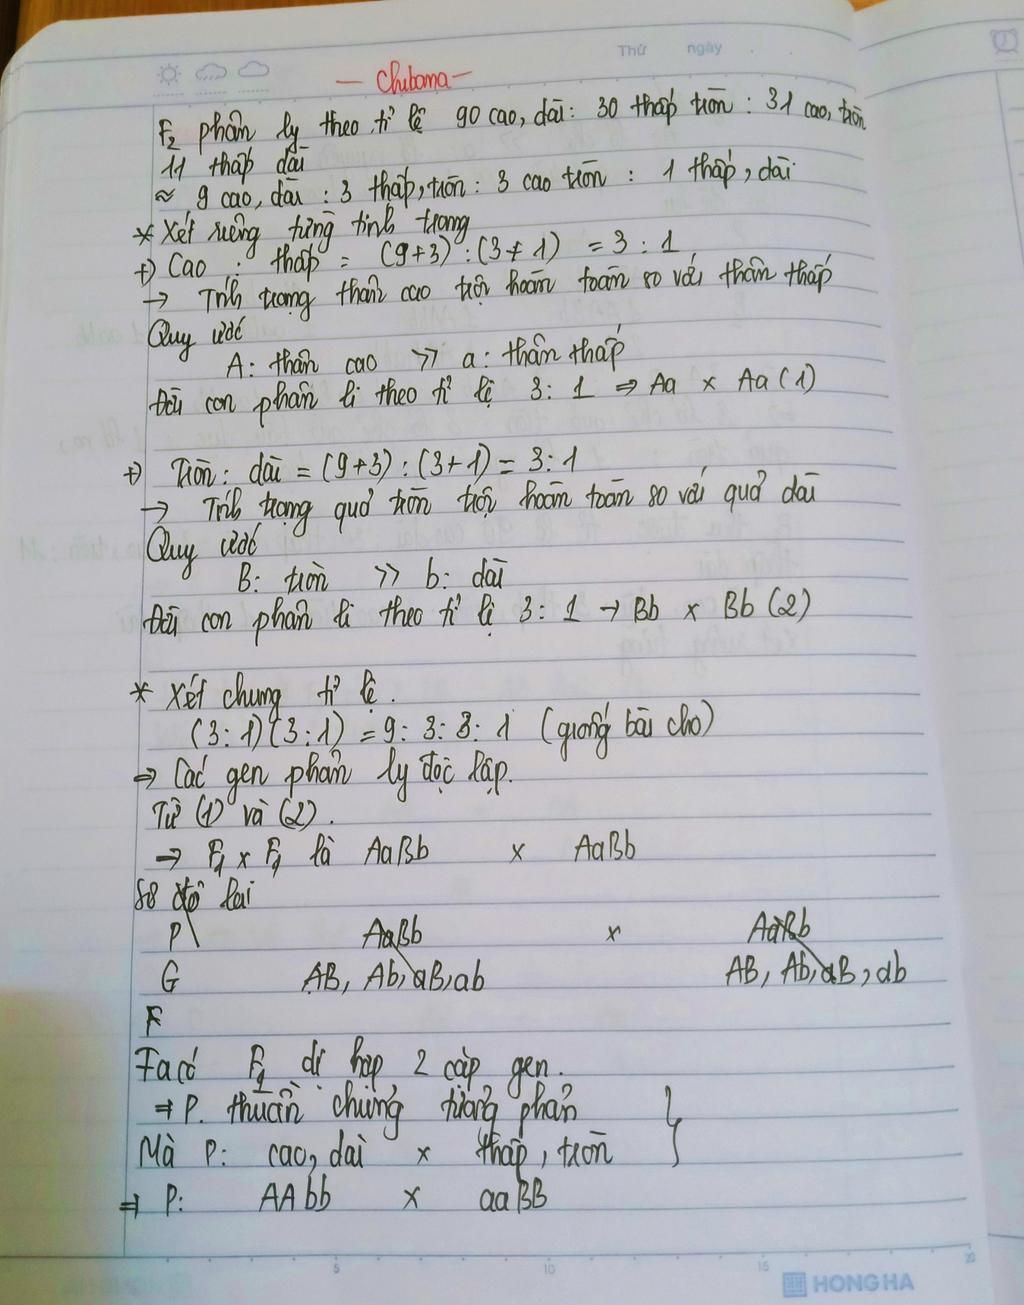 Thứ ngày
— Chibana —
F₂ phân ly theo tỉ lệ 90 cao, dài : 30 thấp tròn : 31 cao, tròn
11 thấp dài
≈ 9 cao, dài : 3 thấp, tròn : 3 cao tròn : 1 thấp, dài
* Xét riêng từng tính trạng
+) Cao : thấp = (9+3) : (3+1) = 3 : 1
→ Tính trạng thân cao trội hoàn toàn so với thân thấp
Quy ước
A: thân cao >> a: thân thấp
Đời con phân li theo tỉ lệ 3 : 1 ⇒ Aa × Aa (1)
+) Tròn : dài = (9+3) : (3+1) = 3 : 1
→ Tính trạng quả tròn trội hoàn toàn so với quả dài
Quy ước
B: tròn >> b: dài
Đời con phân li theo tỉ lệ 3 : 1 → Bb × Bb (2)
* Xét chung tỉ lệ.
(3:1)(3:1) = 9 : 3 : 3 : 1 (giống bài cho)
⇒ Các gen phân ly độc lập.
Từ (1) và (2).
→ F₁ × F₁ là AaBb × AaBb
Sơ đồ lai
P AaBb × AaBb
G AB, Ab, aB, ab AB, Ab, aB, ab
F
Ta có F₁ dị hợp 2 cặp gen.
⇒ P. thuần chủng tương phản }
Mà P: cao, dài × thấp, tròn
⇒ P: AAbb × aaBB
5 10 15 20
HONG HA